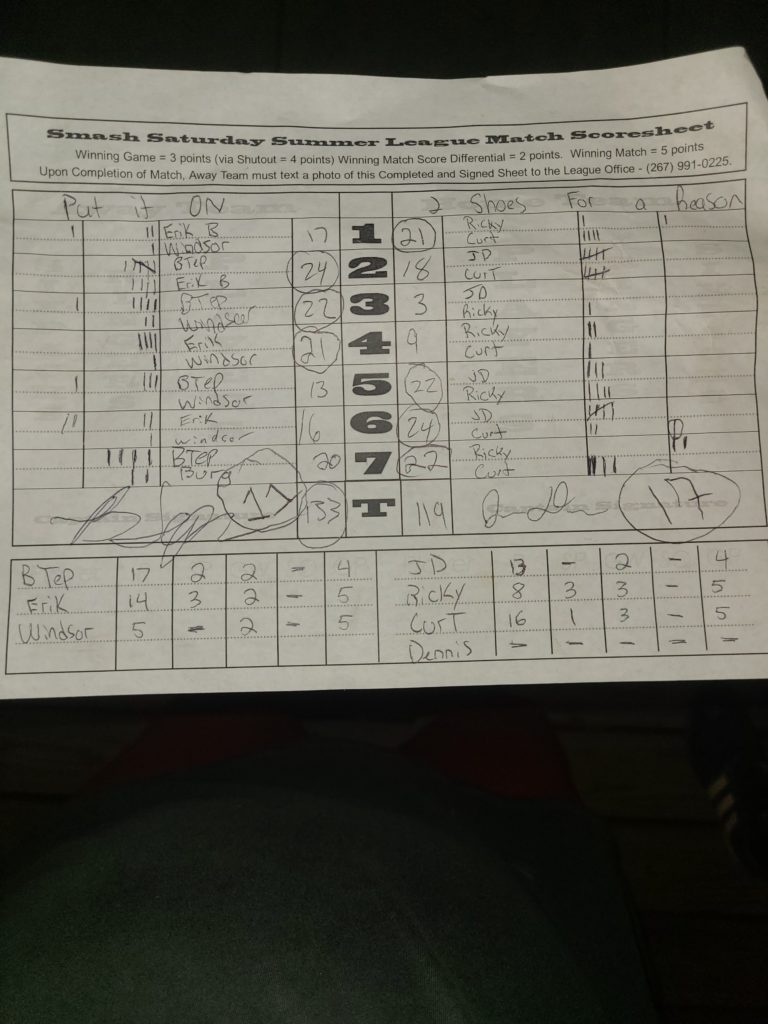 Smash Saturday Summer League Match Scoresheet
Winning Game = 3 points (via Shutout = 4 points) Winning Match Score Differential = 2 points. Winning Match = 5 points
Upon Completion of Match, Away Team must text a photo of this Completed and Signed Sheet to the League Office - (267) 991-0225.
Put it ON 2 Shoes For a Reason
Erik B 17 1 21 Ricky
Windsor Curt
BTep 24 2 18 JD
Erik B CurT
BTep 22 3 3 JD
Windsor Ricky
Erik 21 4 9 Ricky
Windsor Curt
BTep 13 5 22 JD
Windsor Ricky
Erik 16 6 24 JD
Windsor Curt
BTep 20 7 22 Ricky
Curt
17 133 T 119 17
BTep 17 2 2 - 4 JD 13 - 2 - 4
Erik 14 3 2 - 5 Ricky 8 3 3 - 5
Windsor 5 - 2 - 5 CurT 16 1 3 - 5
Dennis - - - - -